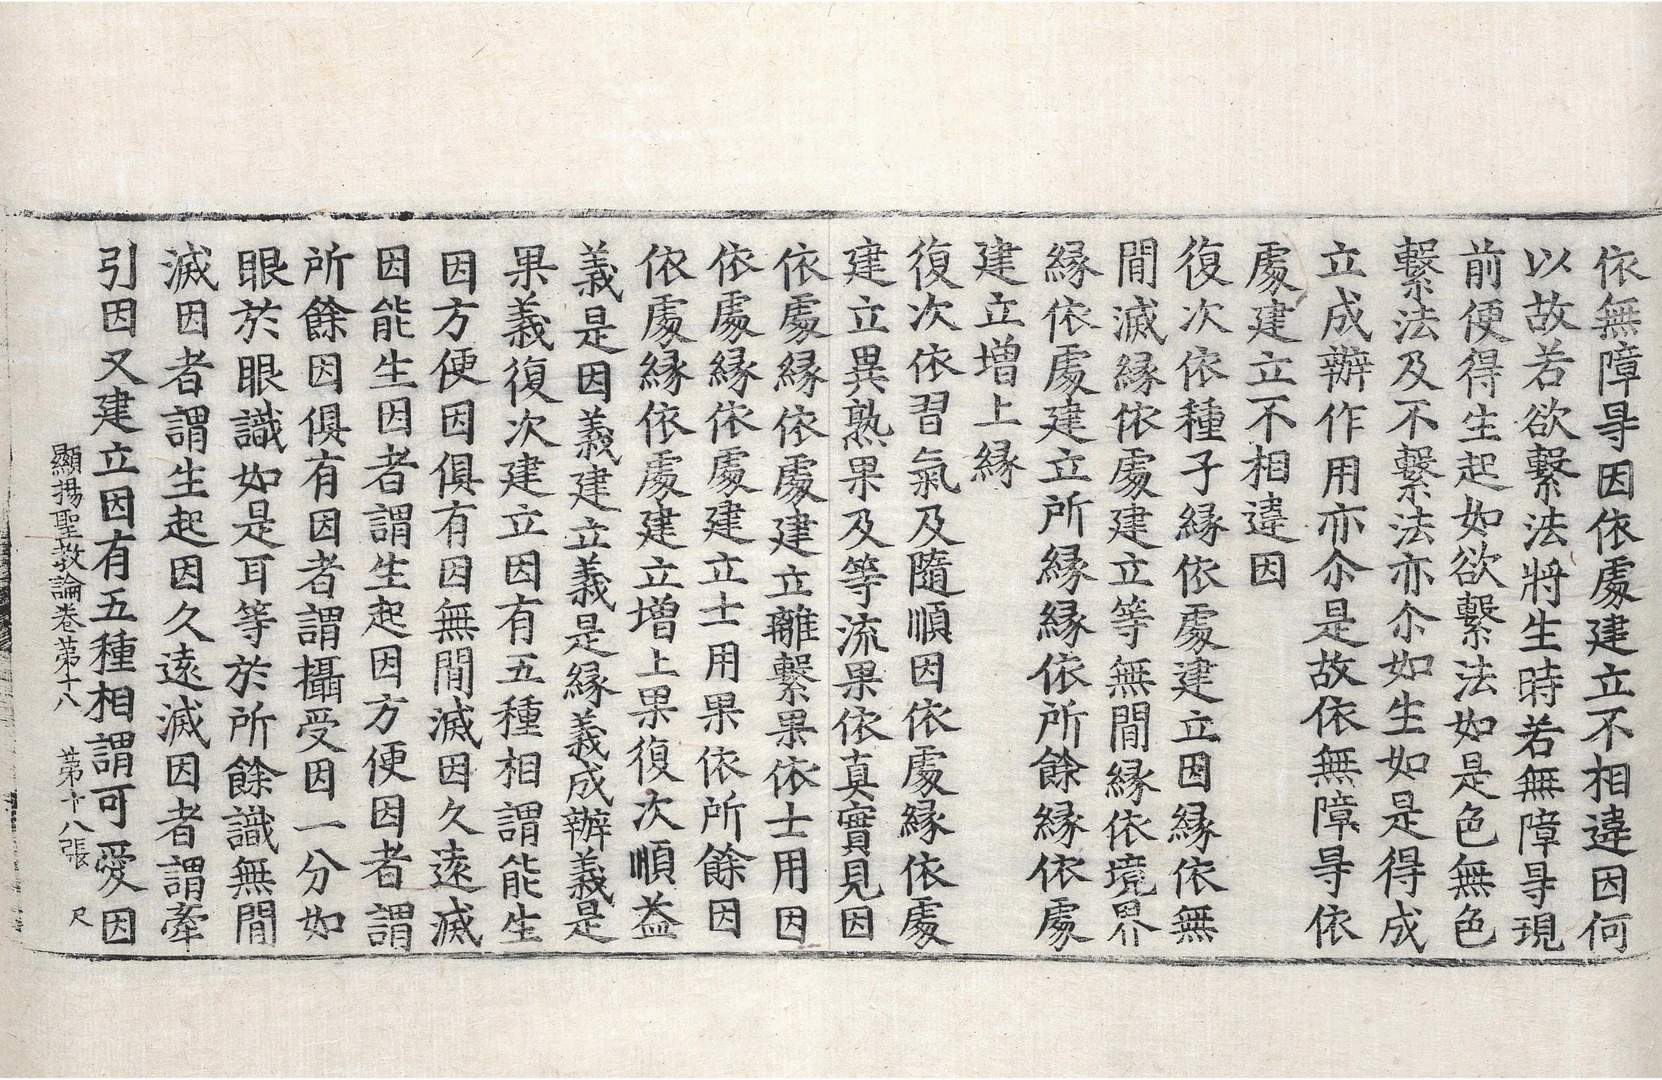 依無障㝵因依處建立不相違因何
以故若欲繫法將生時若無障㝵現
前便得生起如欲繫法如是色無色
繫法及不繫法亦尒如生如是得成
立成辦作用亦尒是故依無障㝵依
處建立不相違因
復次依種子緣依處建立因緣依無
間滅緣依處建立等無間緣依境界
緣依處建立所緣緣依所餘緣依處
建立增上緣
復次依習氣及隨順因依處緣依處
建立異熟果及等流果依真實見因
依處緣依處建立離繫果依士用因
依處緣依處建立士用果依所餘因
依處緣依處建立增上果復次順益
義是因義建立義是緣義成辦義是
果義復次建立因有五種相謂能生
因方便因俱有因無間滅因久遠滅
因能生因者謂生起因方便因者謂
所餘因俱有因者謂攝受因一分如
眼於眼識如是耳等於所餘識無間
滅因者謂生起因久遠滅因者謂牽
引因又建立因有五種相謂可愛因
顯揚聖教論卷第十八 第十八張 尺